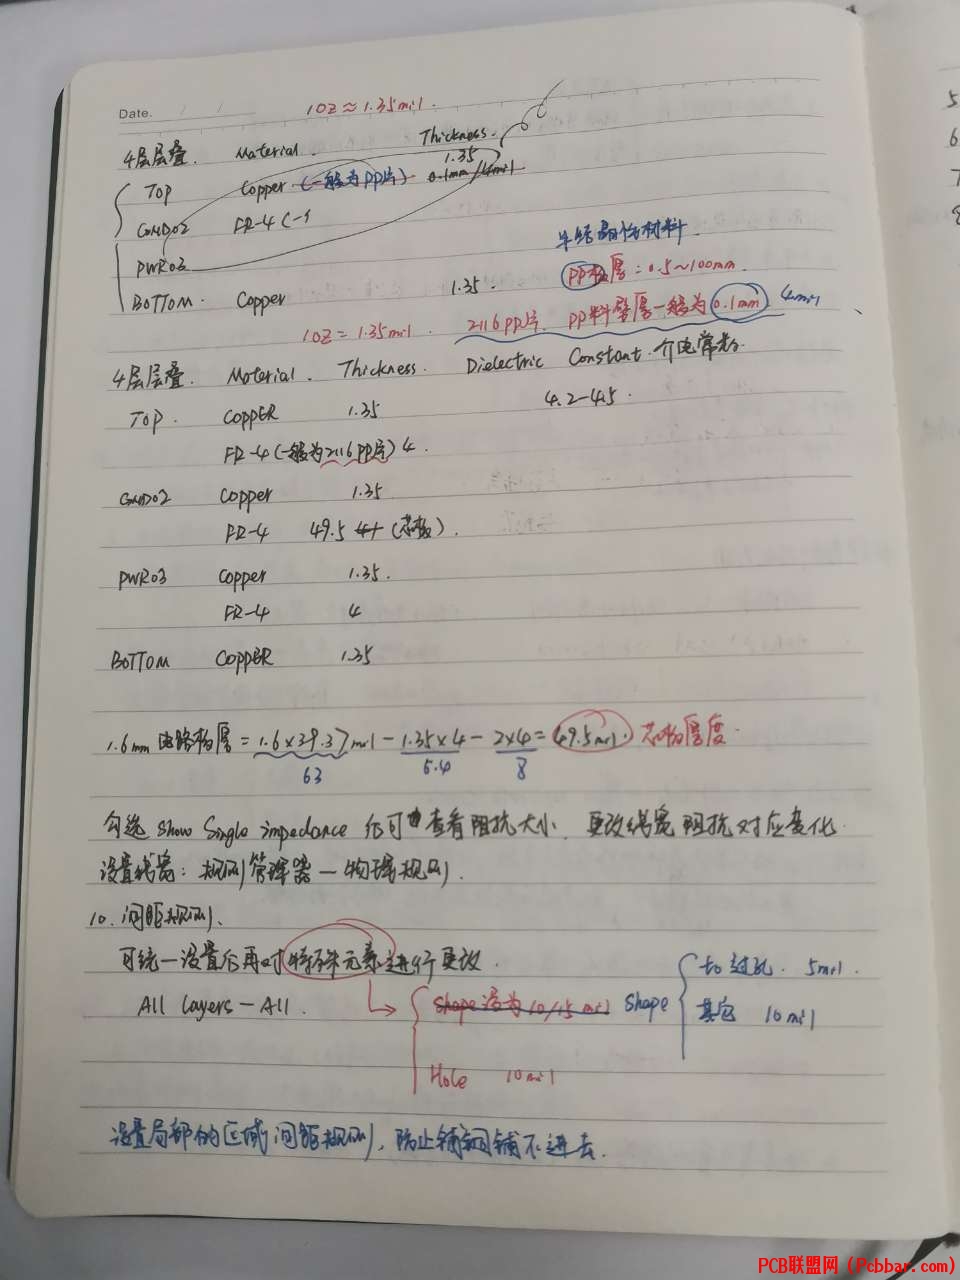 Date. / /
1OZ≈1.35mil.
4层层叠. Material. Thickness.
TOP Copper (一般为PP片) 1.35 0.1mm/4mil
GND02 FR-4 (一
PWR03
半结晶性材料
PP板厚:0.5~100mm.
BOTTOM. Copper 1.35.
1OZ=1.35mil. 2116PP片. PP料壁厚一般为0.1mm 4mil
4层层叠. Material. Thickness. Dielectric Constant.介电常数
TOP. COPPER 1.35 4.2-4.5.
FR-4(一般为2116PP片) 4.
GND02 Copper 1.35
FR-4 49.5 (芯板).
PWR03 Copper 1.35.
FR-4 4
BOTTOM COPPER 1.35
1.6mm电路板厚=1.6×39.37mil-1.35×4-2×4=49.5mil. 芯板厚度.
63 5.4 8
勾选 Show Single impedance 后可查看阻抗大小. 更改线宽 阻抗对应变化.
设置线宽:规则管理器—物理规则.
10.间距规则.
可统一设置后再对特殊元素进行更改.
All Layers-All.
Shape设为10/15mil Shape to过孔. 5mil.
其它 10mil
Hole 10mil
设置局部的区域间距规则,防止铺铜铺不进去.
5
6
7
8
PCB联盟网(Pcbbar.com)